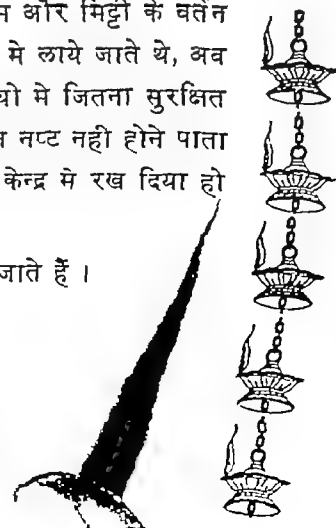 और मिट्टी के वर्तन
मे लाये जाते थे, अव
मे जितना सुरक्षित
नप्ट नही होने पाता
केन्द्र मे रख दिया हो
जाते हैं ।